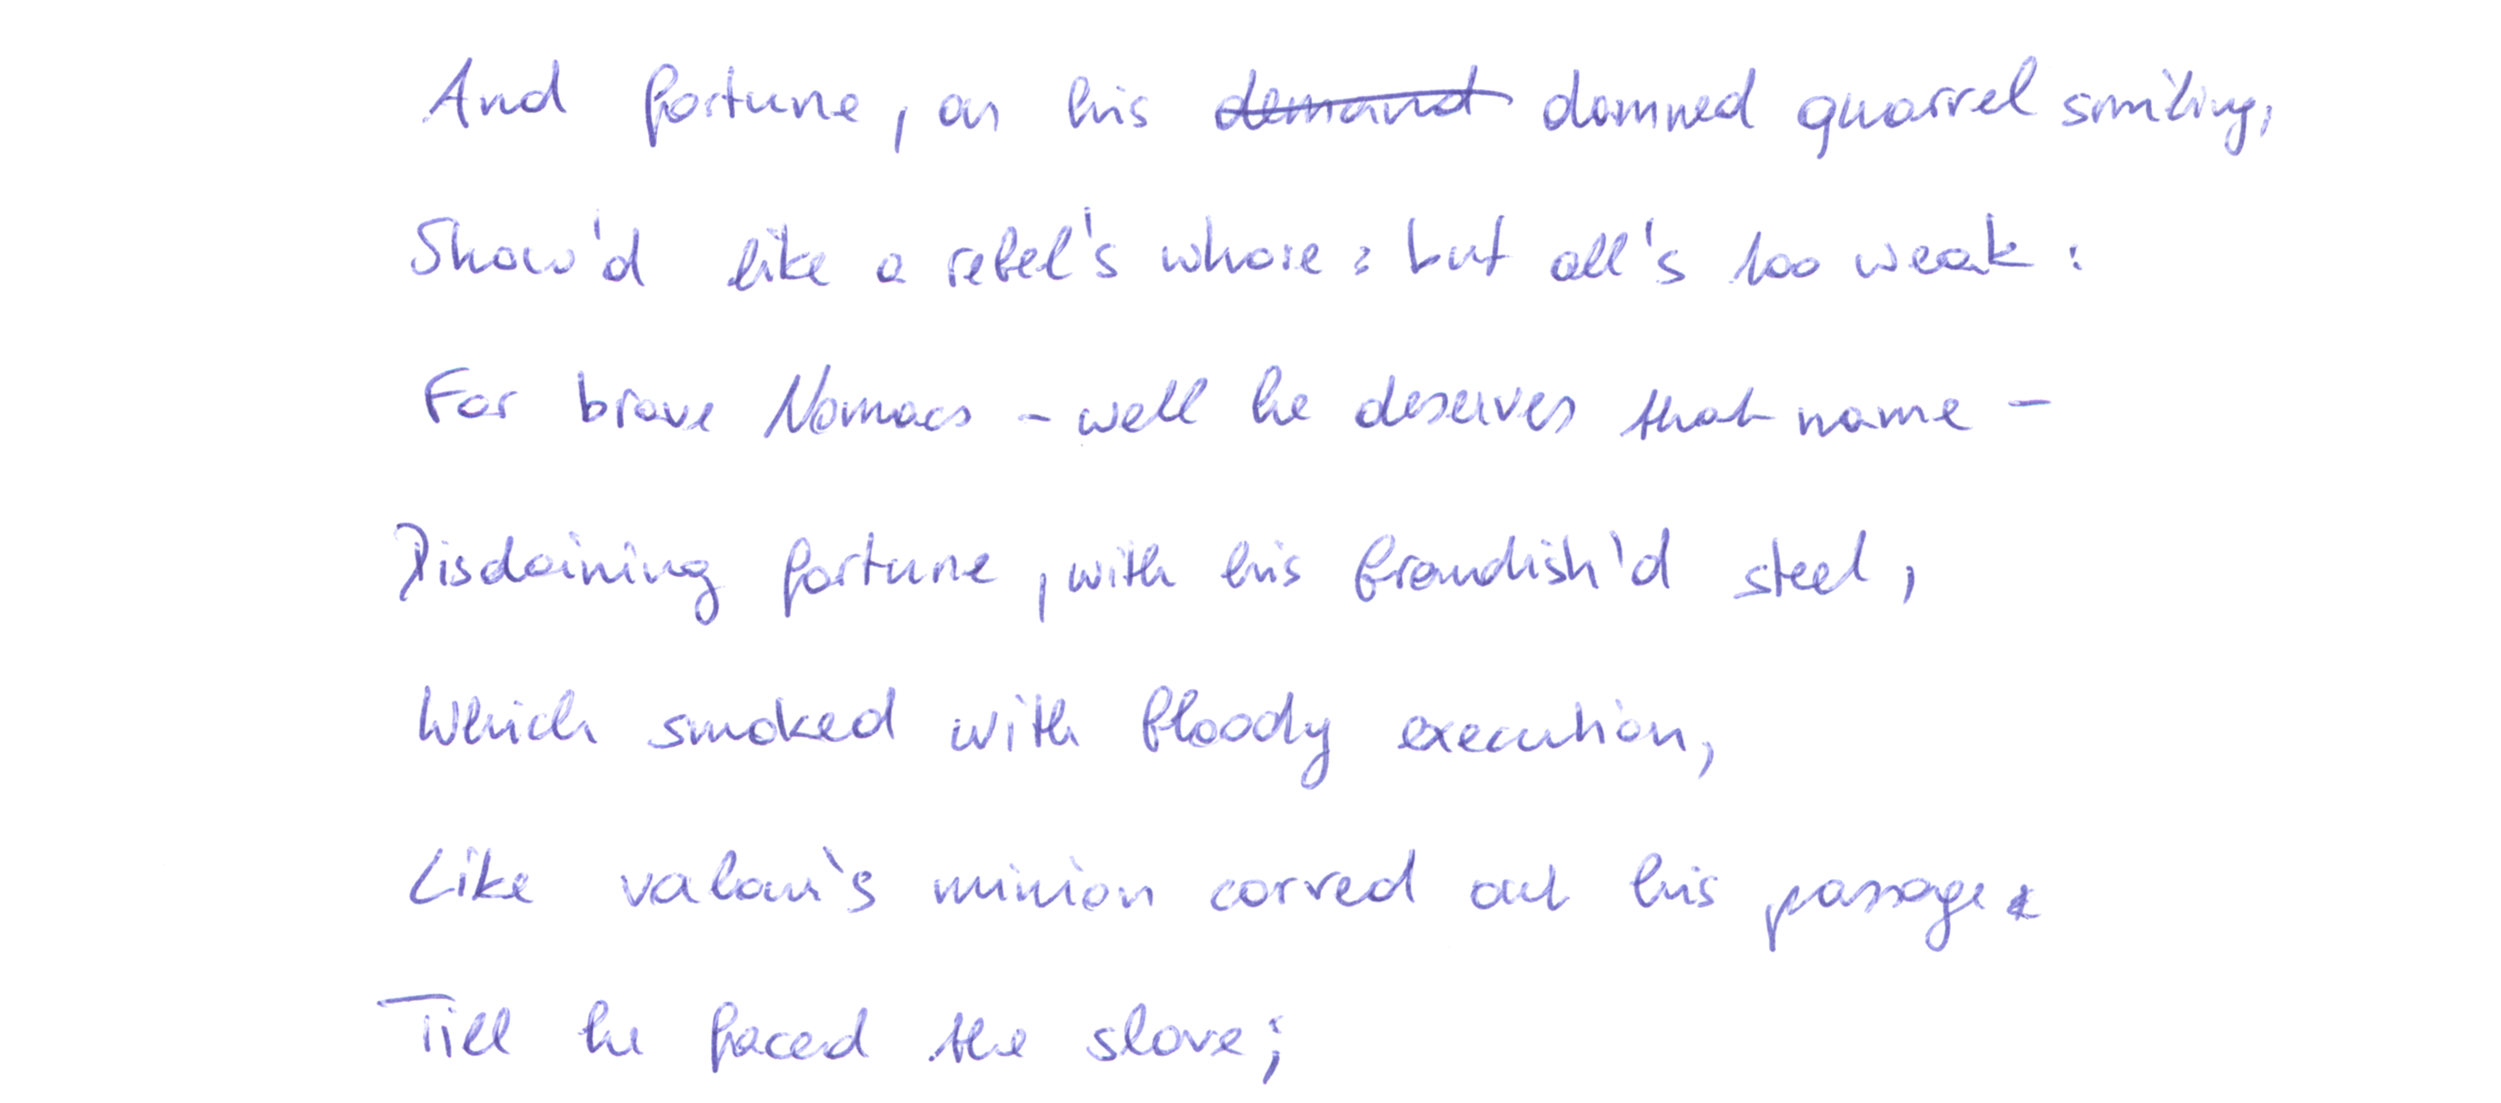 And fortune, on his demand damned quarrel smiling,
Show'd like a rebel's whore: but all's too weak:
For brave Nomacs - well he deserves that name -
Disdaining fortune, with his brandish'd steel,
Which smoked with bloody execution,
Like valour's minion carved out his passage
Till he faced the slave;